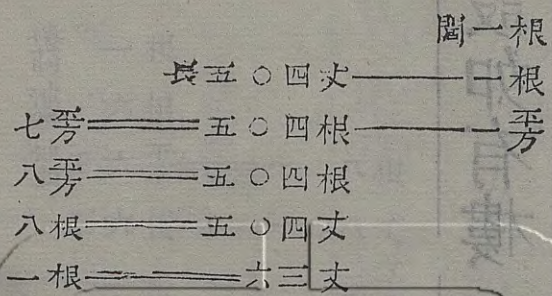 闊一根
長五〇四丈——一根
七平方══五〇四根——一平方
八平方══五〇四根
八根══五〇四丈
一根══六三丈